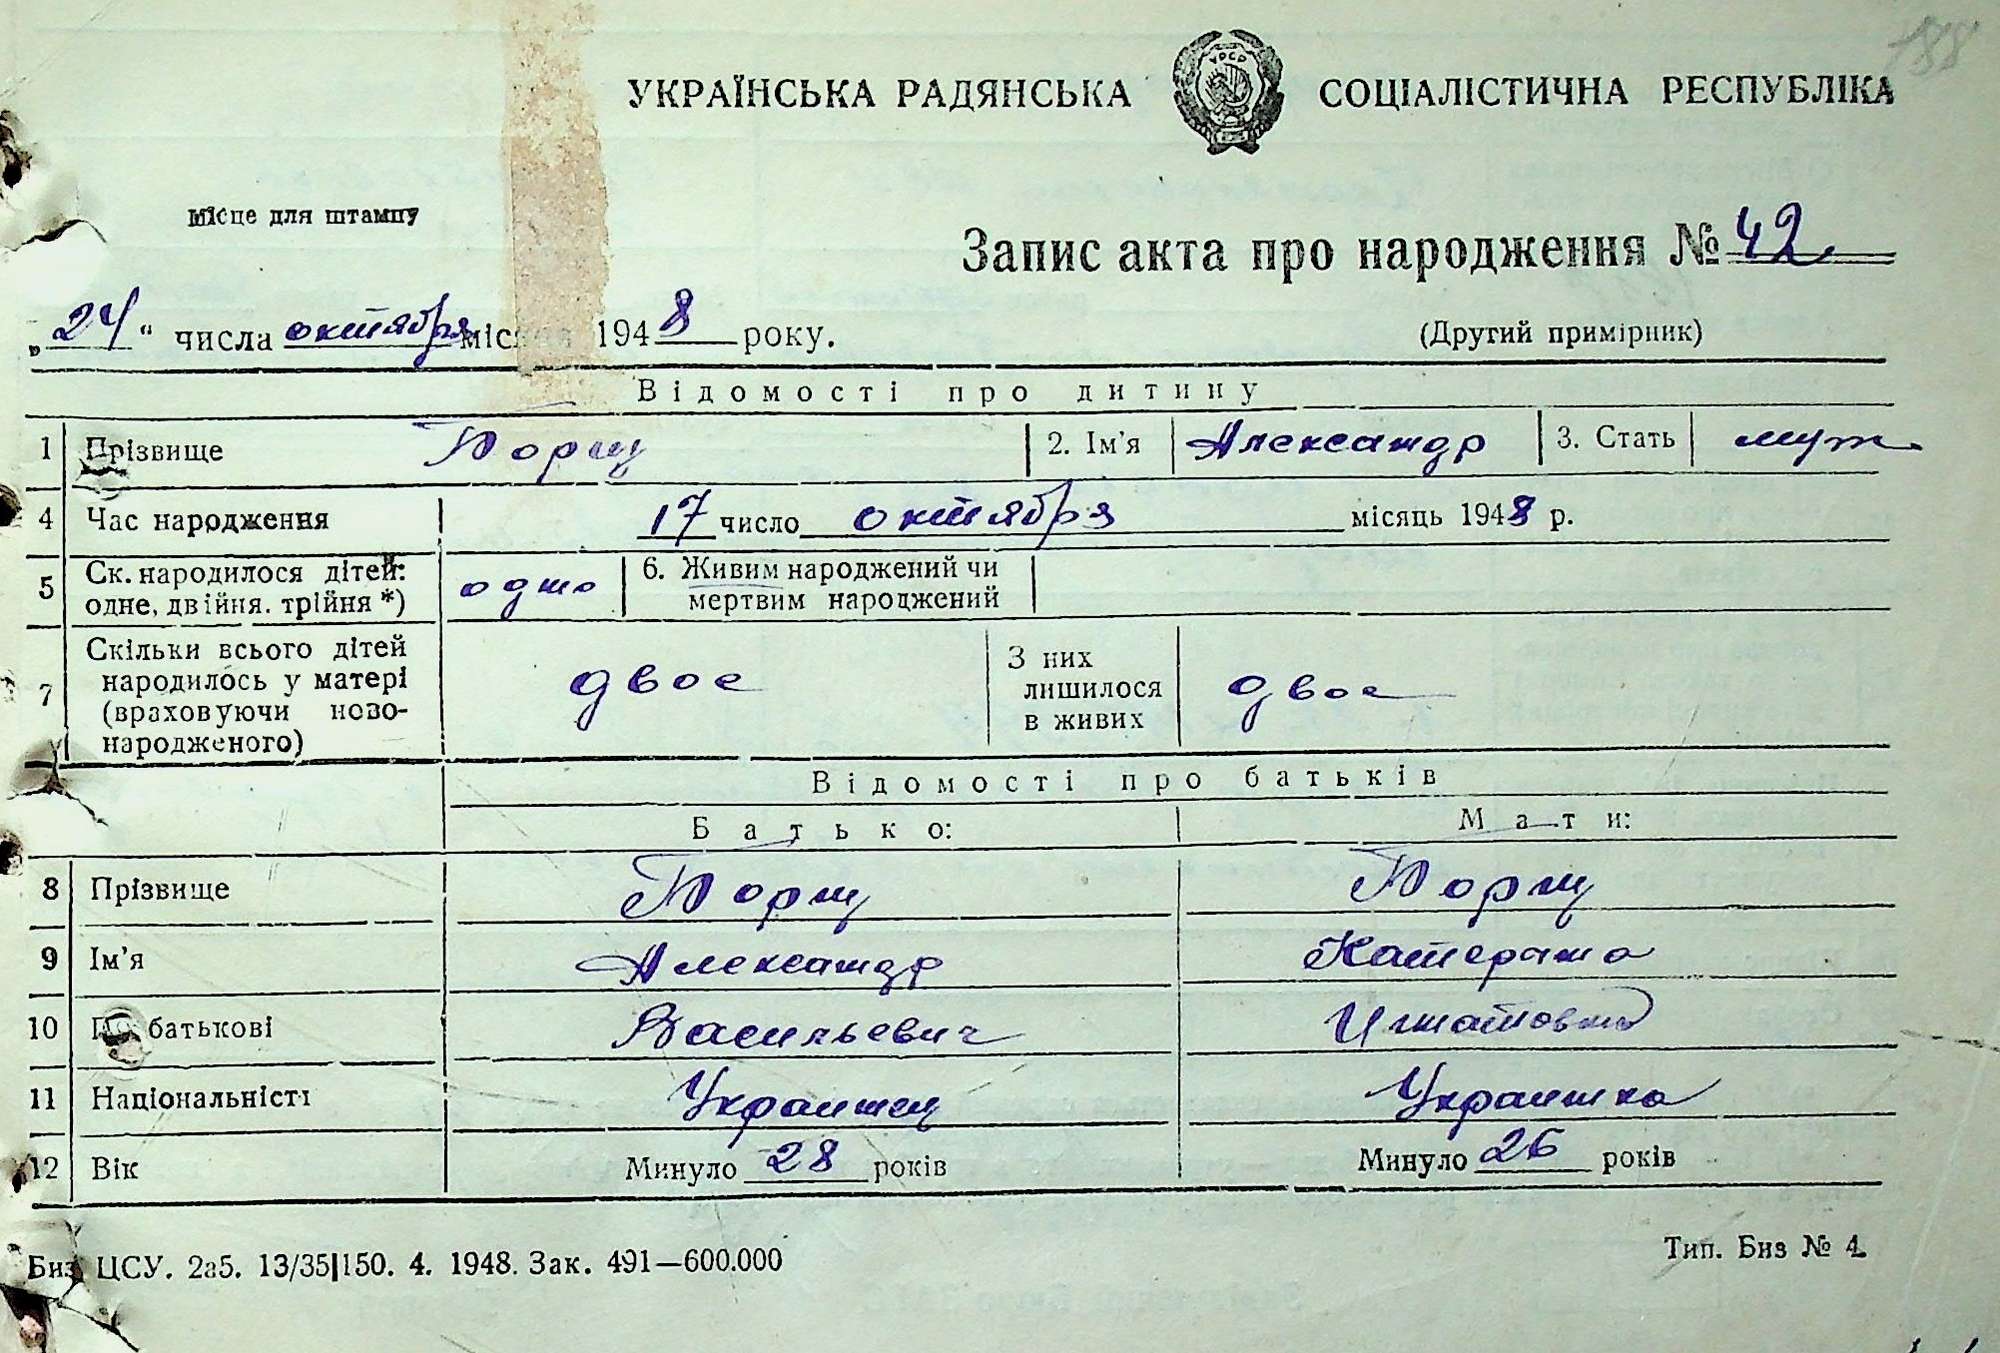 188
УКРАЇНСЬКА РАДЯНСЬКА СОЦІАЛІСТИЧНА РЕСПУБЛІКА
УРСР
Місце для штампу
Запис акта про народження № 42
„24“ числа октября місяця 1948 року.
(Другий примірник)
Відомості про дитину
1 Прізвище Борщ 2. Ім'я Александр 3. Стать муж
4 Час народження 17 число октября місяць 1948 р.
5 Ск. народилося дітей: одно 6. Живим народжений чи
одне, двійня. трійня *) мертвим народжений
7 Скільки всього дітей
народилось у матері
(враховуючи ново-
народженого) двое
З них
лишилося
в живих двое
Відомості про батьків
Батько: Мати:
8 Прізвище Борщ Борщ
9 Ім'я Александр Катерина
10 По батькові Васильевич Игнатовна
11 Національність Украинец Украинка
12 Вік Минуло 28 років Минуло 26 років
Биз ЦСУ. 2а5. 13/35|150. 4. 1948. Зак. 491—600.000
Тип. Биз № 4.